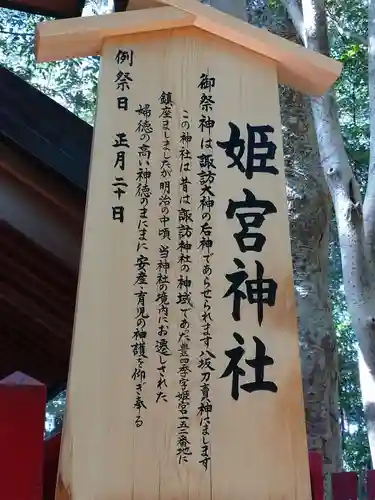 姫宮神社
御祭神は諏訪大神の后神であらせられます八坂刀賣神にまします
この神社は昔は諏訪神社の神域であった豊四季字姫宮一五二番地に
鎮座ましましたが明治の中頃、当神社の境内にお遷しされました
婦徳の高い神徳のまにまに安産・育児の神護を仰ぎ奉る
例祭日 正月二十日